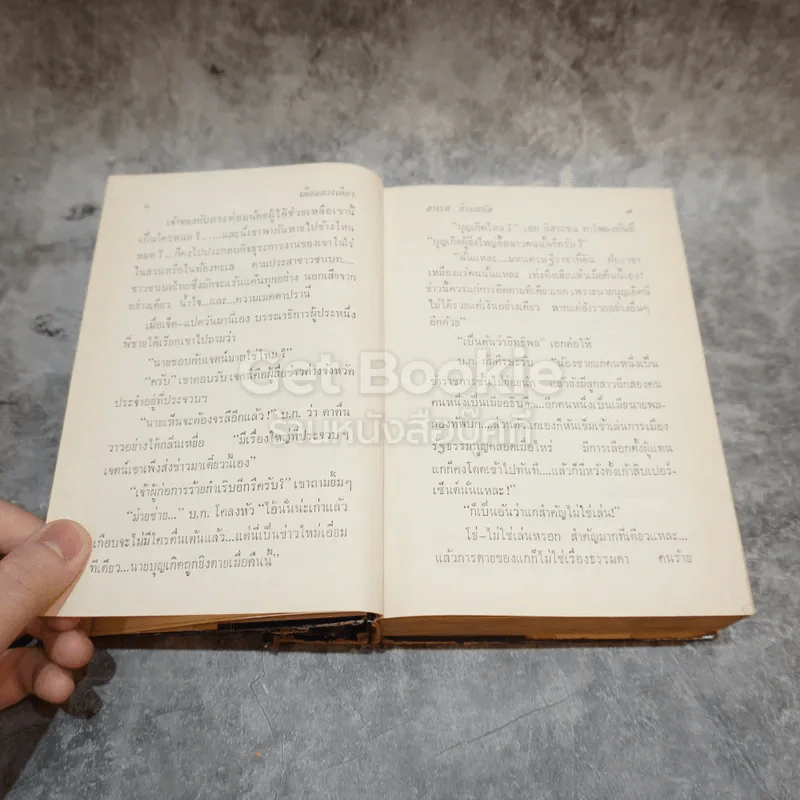 เดือนดวงเดียว
เจ้าของทับกระท่อมน้อยผู้ได้ช่วยเหลือเขานี้
เป็นใครหนอ ?......และนี่เขาพากันหายไปข้างไหน
หมด ?...ก็คงไปประกอบกิจธุระการงานของเขาในไร่
ในสวนหรือในท้องทะเล ตามประสาชาวชนบท....
ชาวชนบทไทยซึ่งมักจะแร้นแค้นทุกอย่าง นอกเสียจาก
อย่างเดียว น้ำใจ...และ...ความเมตตาปรานี
เมื่อเจ็ด-แปดวันมานี่เอง บรรณาธิการผู้ประหนึ่ง
พี่ชายได้เรียกเขาไปถามว่า
"นายชอบกับเจตน์มากใช่ไหม ?"
"ครับ" เขาตอบรับ เจตน์คือผู้สื่อข่าวต่างจังหวัด
ประจำอยู่ที่ประจวบฯ
"นายเห็นจะต้องจรลีอีกแล้ว !" บ.ก. ว่า ตาตื่น
วาวอย่างได้กลิ่นเหยื่อ "มีเรื่องใหญ่ที่ประจวบฯ
เจตน์เขาเพิ่งส่งข่าวมาเดี๋ยวนี้เอง"
"เจ้าผู้ก่อการร้ายกำเริบอีกรึครับ ?" เขาถามยิ้มๆ
"ม่ายช่าย..." บ.ก. โคลงหัว "ไอ้นั่นน่ะเก่าแล้ว
เกือบจะไม่มีใครตื่นเต้นแล้ว...แต่นี่เป็นข่าวใหม่เอี่ยม
ทีเดียว...นายบุญเกิดถูกยิงตายเมื่อคืนนี้"
"บุญเกิดไหน ?" เอก
"บุญเกิดผู้ยิ่งใหญ่
"นั่นแหละ....มหาเศรษฐีราชาที่ดิน กับราชา
เหมืองแร่คนนั้นแหละ เพิ่งทิ้งเสือแล้วเมื่อคืนนี้เอง!
ข่าวนี้ควรแก่การติดตามทีเดียวเอก เพราะนายบุญเกิดนี่
ไม่ได้รวยแค่เงินอย่างเดียว หากแต่ยังรวยอย่างอื่นๆ
อีกด้วย"
"เป็นต้นว่าอิทธิพล" เอกต่อให้
บ.ก. ก้มศีรษะรับ "น้องชายแกคนหนึ่งเป็น
คนหนึ่งเป็นเมียอธิบดี....อีกคนหนึ่งเป็นเมียนายพล-
กองทัพบก....ส่วนตัวแกเองก็หันเข้าเล่นการเมือง
รัฐธรรมนูญคลอดเมื่อไหร่ มีการเลือกตั้งผู้แทน
แกก็คงโดดเข้าไปทันที....แล้วก็มีหวังตั้งเก้าสิบเปอร์-
เซ็นต์นั่นแหละ!"
"ก็เป็นอันว่าแกสำคัญไม่ใช่เล่น!"
โธ่-ไม่ใช่เล่นหรอก สำคัญมากทีเดียวแหละ...
แล้วการตายของแกก็ไม่ใช่เรื่องธรรมดา คนร้าย
Get Bookie
ร้านหนังสือบุ๊คกี้